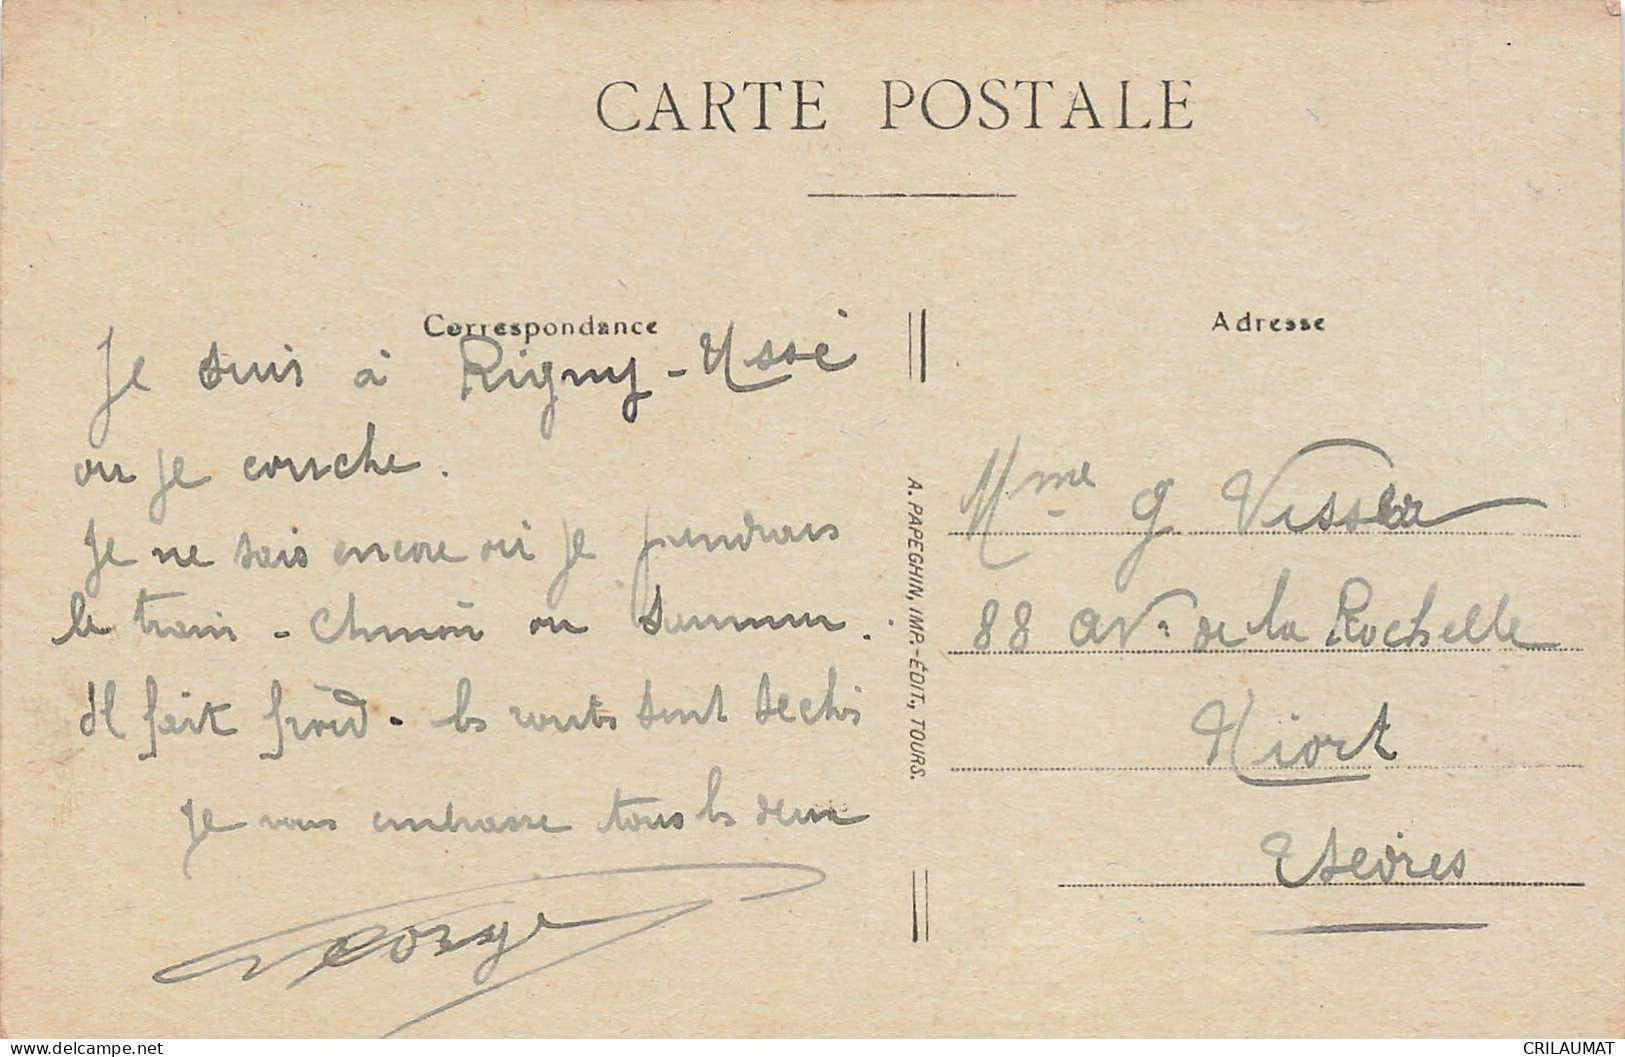 CARTE POSTALE
Correspondance
Je suis à Rigny-Ussé
ou je couche.
Je ne sais encore où je prendrais
le train - Chinon ou Saumur.
Il fait froid - les routes sont seches
Je vous embrasse tous les deux
George
A. PAPEGHIN, IMP.-ÉDIT., TOURS.
Adresse
Mme G
88 av. de la Rochelle
Niort
2 Sèvres
www.delcampe.net
CRILAUMAT